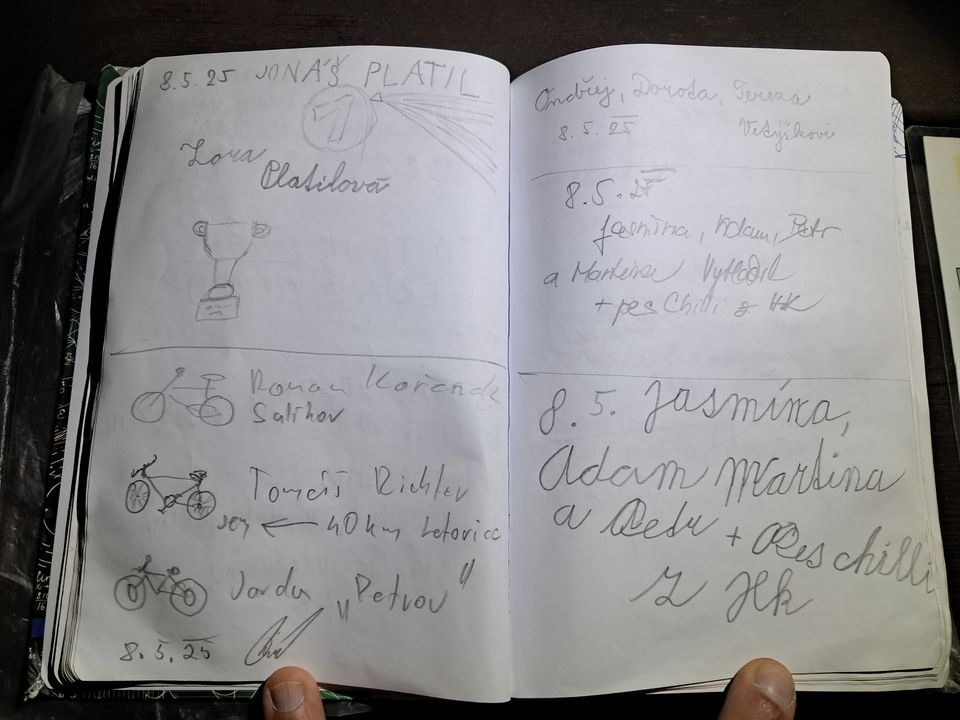 8.5.25 JONÁŠ PLATIL
1
Lora
Platilová
Roman Kořenek
Salikov
Tomáš Richter
sem ← 40 km Letovice
Jarda „Petrov"
8.5.25
Ondřej, Dorota, Tereza
8.5.25 Vetýškovi
8.5.25
Jasmína, Adam, Petr
a Martina
+ pes Chilli z HK
8.5. Jasmína,
Adam Martina
a Petr + Pes chilli
z Hk